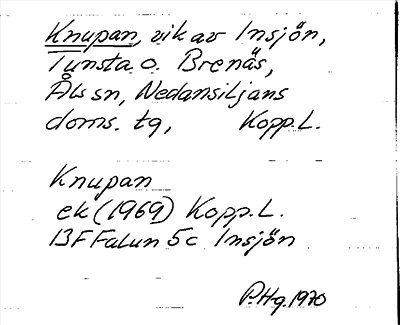 Knupan, vik av Insjön,
Tunsta o. Brenäs,
Åls sn, Nedansiljans
doms. tg, Kopp.L.
Knupan
ek (1969) Kopp.L.
13F Falun 5c Insjön
P.Hg. 1970